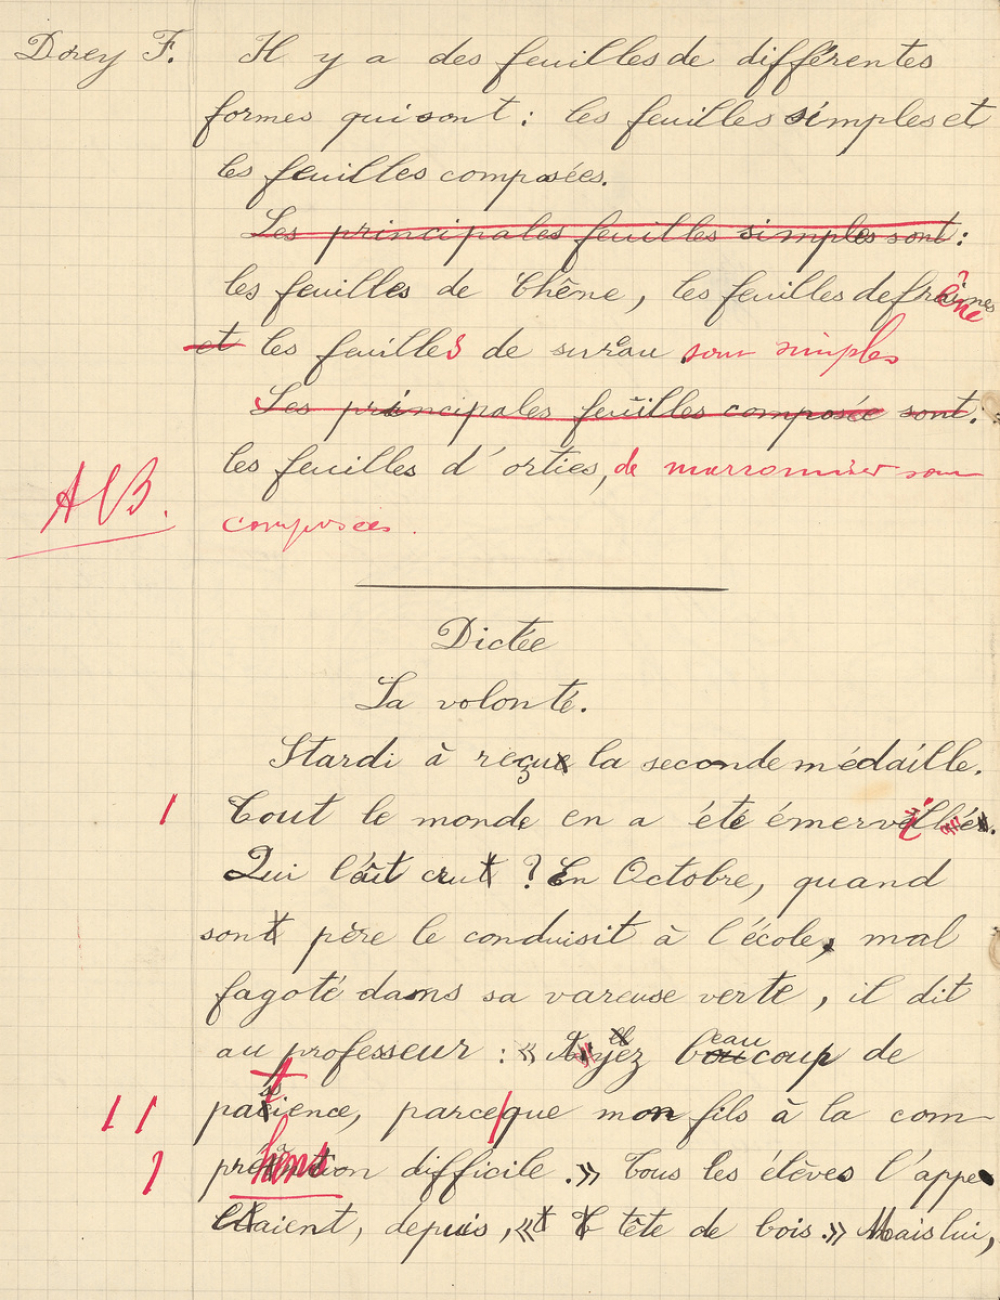 Dorey F. Il y a des feuilles de différentes
formes qui sont : les feuilles simples et
les feuilles composées.
Les principales feuilles simples sont :
les feuilles de Chêne, les feuilles de frênes
et les feuilles de sureau sont simples
Les principales feuilles composée sont.
les feuilles d'orties, de marronnier sont
AB. composées.
Dictée
La volonté.
Stardi à reçu la seconde médaille.
1 Tout le monde en a été émerveillé.
Qui l'eût cru ? En Octobre, quand
son père le conduisit à l'école, mal
fagoté dans sa vareuse verte, il dit
au professeur : « Ayez beaucoup de
11 patience, parce que mon fils à la com-
1 préhension difficile. » Tous les élèves l'appe
laient, depuis, « tête de bois. » Mais lui,